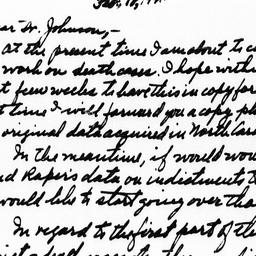 Feb. 10, 19
ar Dr. Johnson,-
At the present time, I am about to c
work on death cases. I hope with
t few weeks to have this in copy for
t time I will forward you a copy, pl
original data acquired in North Car
In the meantime, if would wou
nd Raper's data on indictments t
would like to start going over tha
In regard to the first part of th